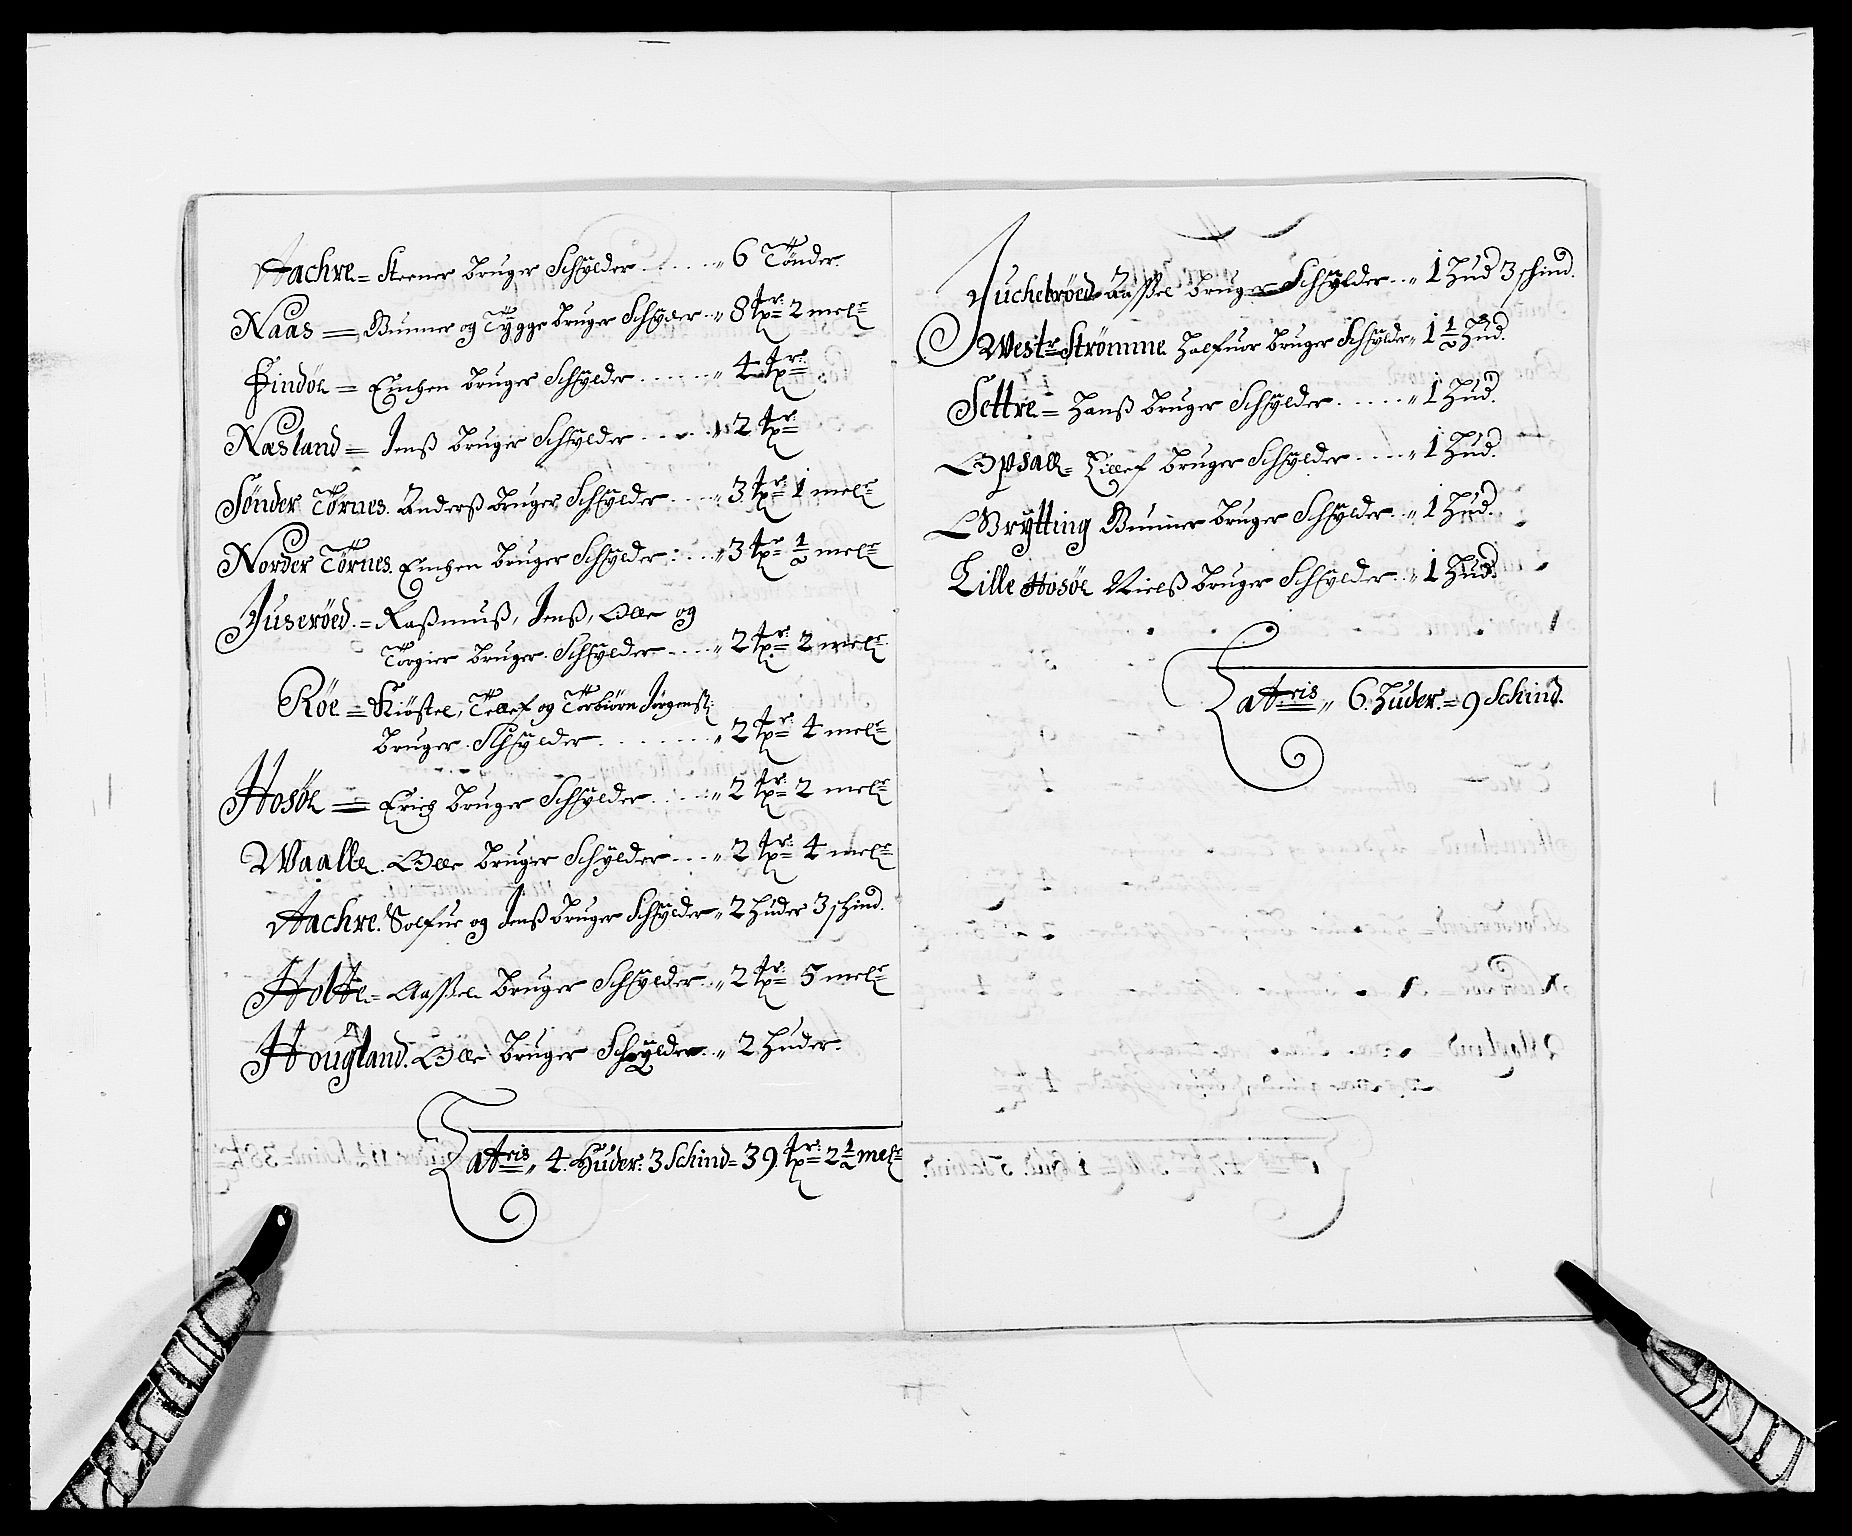 Aachre = Steener bruger Schÿlder ...... „ 6 Tønder.
Naas = Gunner og Tÿgge bruger Schÿlder „ 8 tpr: 2 melr
Findøe = Einchen bruger Schÿlder ...... „ 4 tpr:
Næsland = Jenß bruger Schÿlder .... „ 2 tpr:
Sønder Tørnes. Anderß bruger Schÿlder .... „ 3 tpr: 1 melr
Norder Tørnes. Einchen bruger Schÿlder .... „ 3 tpr 1/2 melr
Juserøed. = Raßmuß, Jenß, Olle og
Torgier bruger Schÿlder .... „ 2 tpr: 2 melr
Røe = Kiøstel, Tellef og Torbiørn Jørgenß:
bruger Schÿlder ........ „ 2 tpr: 4 melr
Hosøe = Erich bruger Schÿlder .... „ 2 tpr: 2 melr
Waalle. Olle bruger Schÿlder ... „ 2 tpr: 4 melr
Aachre. Solfue og Jenß bruger Schÿlder „ 2 huder 3 schind.
Holte = Aassel bruger Schÿlder .. „ 2 tpr: 5 melr
Hougland. Olle bruger Schÿlder .. „ 2 huder.
Latris „ 4. Huder: 3 Schind = 39. tpr: 2 1/2 melr
Juchebrøed Aassel bruger Schÿlder .. „ 1 hud 3 schind.
Westr Strømme. Halfuor bruger Schÿlder „ 1 1/2 hud.
Settre = Hanß bruger Schÿlder ..... „ 1 hud.
Opsall = Tillef bruger Schÿlder .... „ 1 hud.
Grÿtting Gunner bruger Schÿlder .. „ 1 hud.
Lille Hosøe Nielß bruger Schÿlder .. „ 1 hud.
Latris „ 6. huder. = 9 Schind.